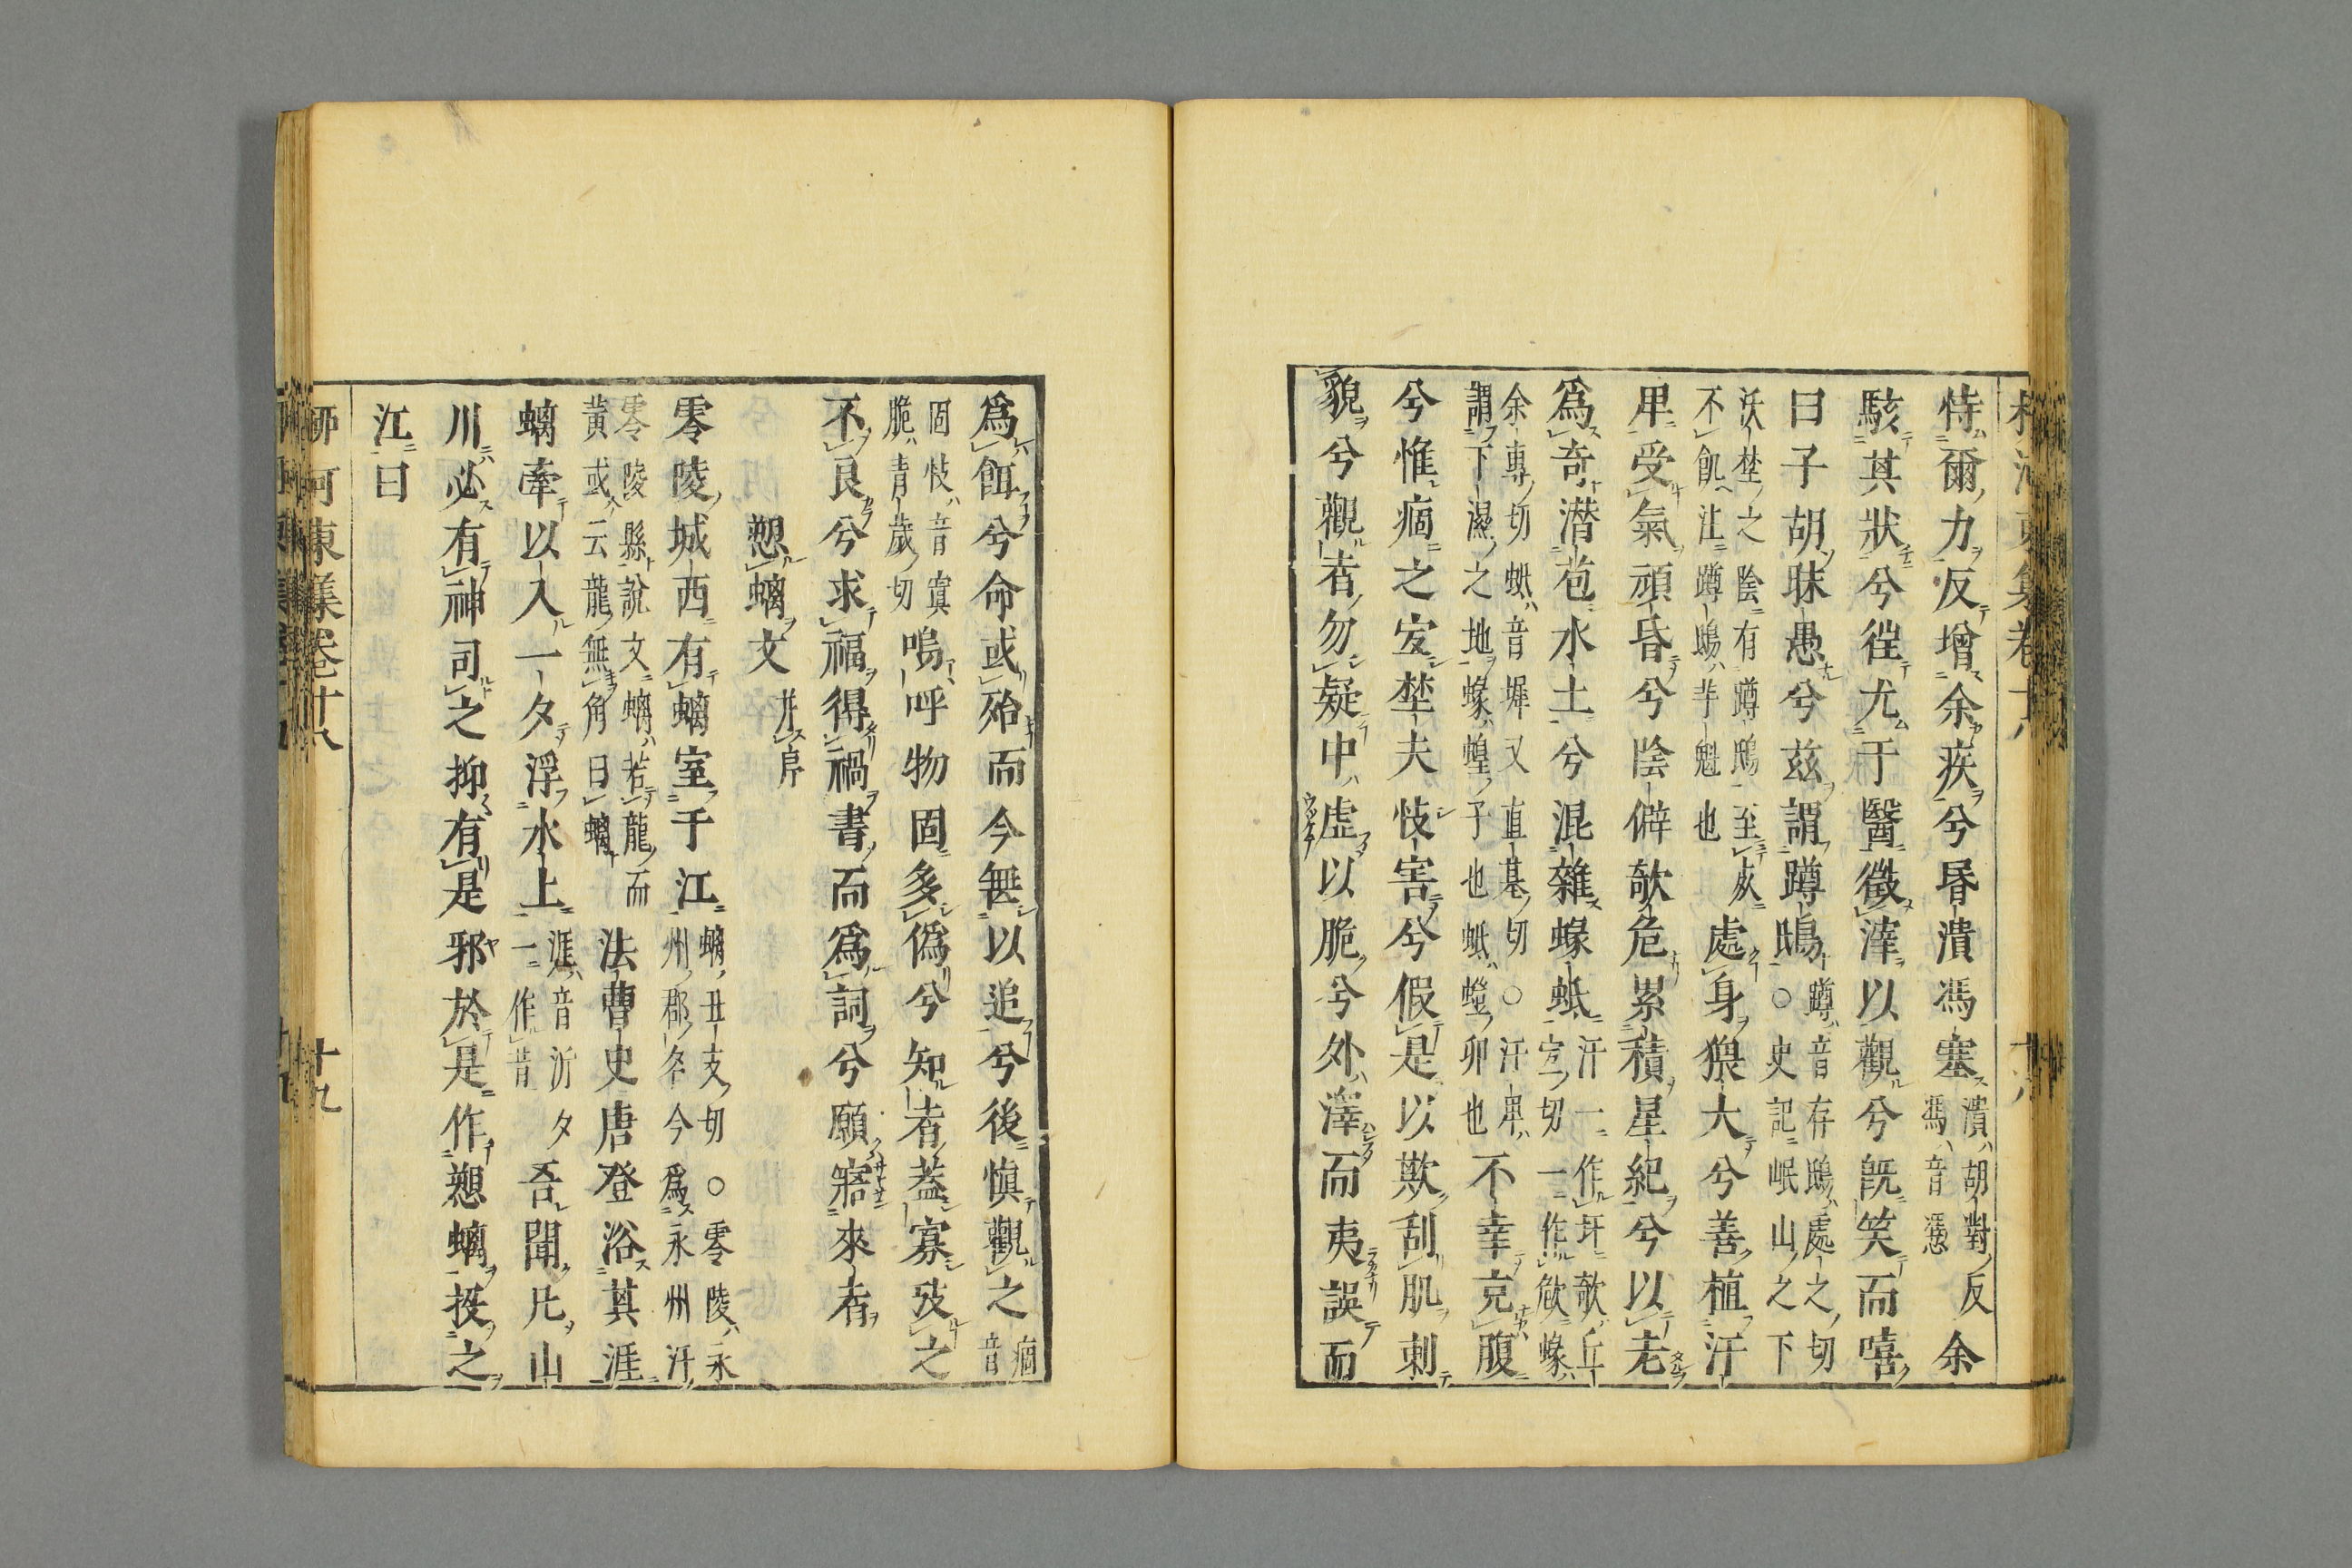 恃爾力反增余疾兮昬潰馮塞潰胡對反馮音憑余
駭其狀兮徃尤于醫徵滓以觀兮旣笑而嘻
曰子胡昧愚兮茲謂蹲鴟蹲音存鴟處之切○史記岷山之下
沃埜之陰有蹲鴟至死不飢註蹲鴟芋魁也處身猥大兮善植汙
卑受氣頑昏兮陰僻欹危累積星紀兮以老
爲奇潛苞水土兮混雜蝝蚳汙一作圩欹丘宜切一作㰟蝝
余專切蚳音墀又直基切○汙卑謂下濕之地蝝蝗子也蚳螘卵也不幸充腹
兮惟痼之宐埜夫忮害兮假是以欺刮肌刺
貌兮觀者勿疑中虛以脆兮外澤而夷誤而
爲餌兮命或殆而今無以追兮後愼觀之痼音
固忮音寘脆青歲切嗚呼物固多僞兮知者葢寡攷之
不良兮求福得禍書而爲詞兮願寤來者
愬螭文并序
零陵城西有螭室于江螭丑支切○零陵永州郡名今爲永州汙
零陵縣說文螭若龍而黃或云龍無角曰螭法曹史唐登浴其涯
螭牽以入一夕浮水上涯音沂夕一作昔吾聞凡山
川必有神司之抑有是邪於是作愬螭投之
江曰
柳河東集卷十八 十九